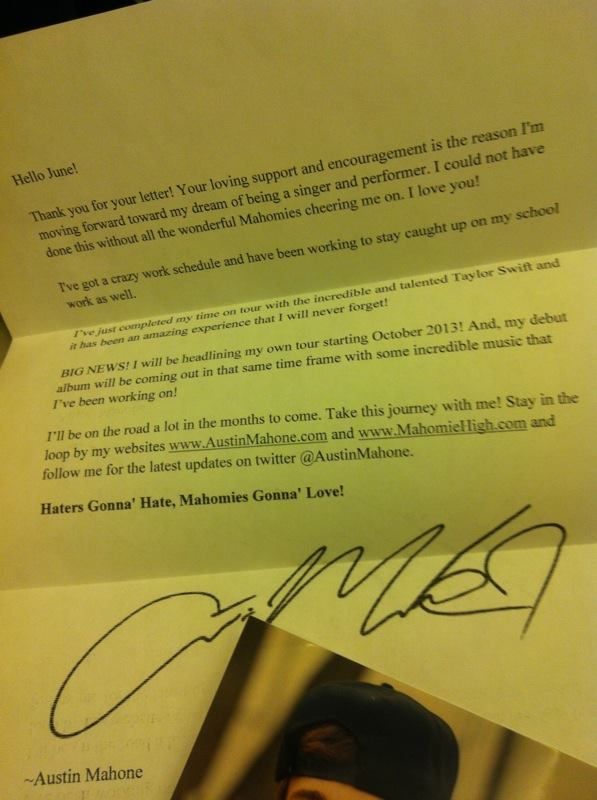 Hello June!
Thank you for your letter! Your loving support and encouragement is the reason I'm
moving forward toward my dream of being a singer and performer. I could not have
done this without all the wonderful Mahomies cheering me on. I love you!
I've got a crazy work schedule and have been working to stay caught up on my school
work as well.
I've just completed my time on tour with the incredible and talented Taylor Swift and
it has been an amazing experience that I will never forget!
BIG NEWS! I will be headlining my own tour starting October 2013! And, my debut
album will be coming out in that same time frame with some incredible music that
I've been working on!
I'll be on the road a lot in the months to come. Take this journey with me! Stay in the
loop by my websites www.AustinMahone.com and www.MahomieHigh.com and
follow me for the latest updates on twitter @AustinMahone.
Haters Gonna' Hate, Mahomies Gonna' Love!
~Austin Mahone